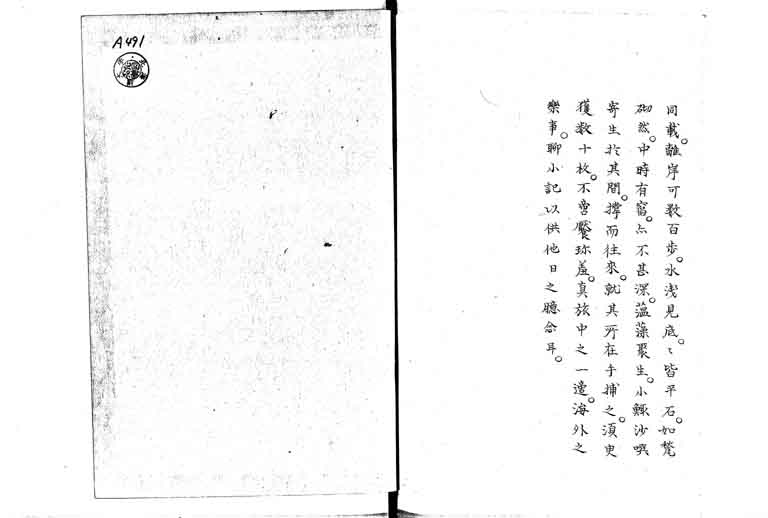 同載。離岸可数百步。水浅見底。〻皆平石。如甃
砌然。中時有窩。亦不甚深。薀藻聚生。小鰂沙噀
寄生於其間。撐而往來。就其所在手捕之。須臾
獲数十枚。不啻饜珎羞。真旅中之一遣。海外之
樂事。聊小記以供他日之臆念耳。
A491